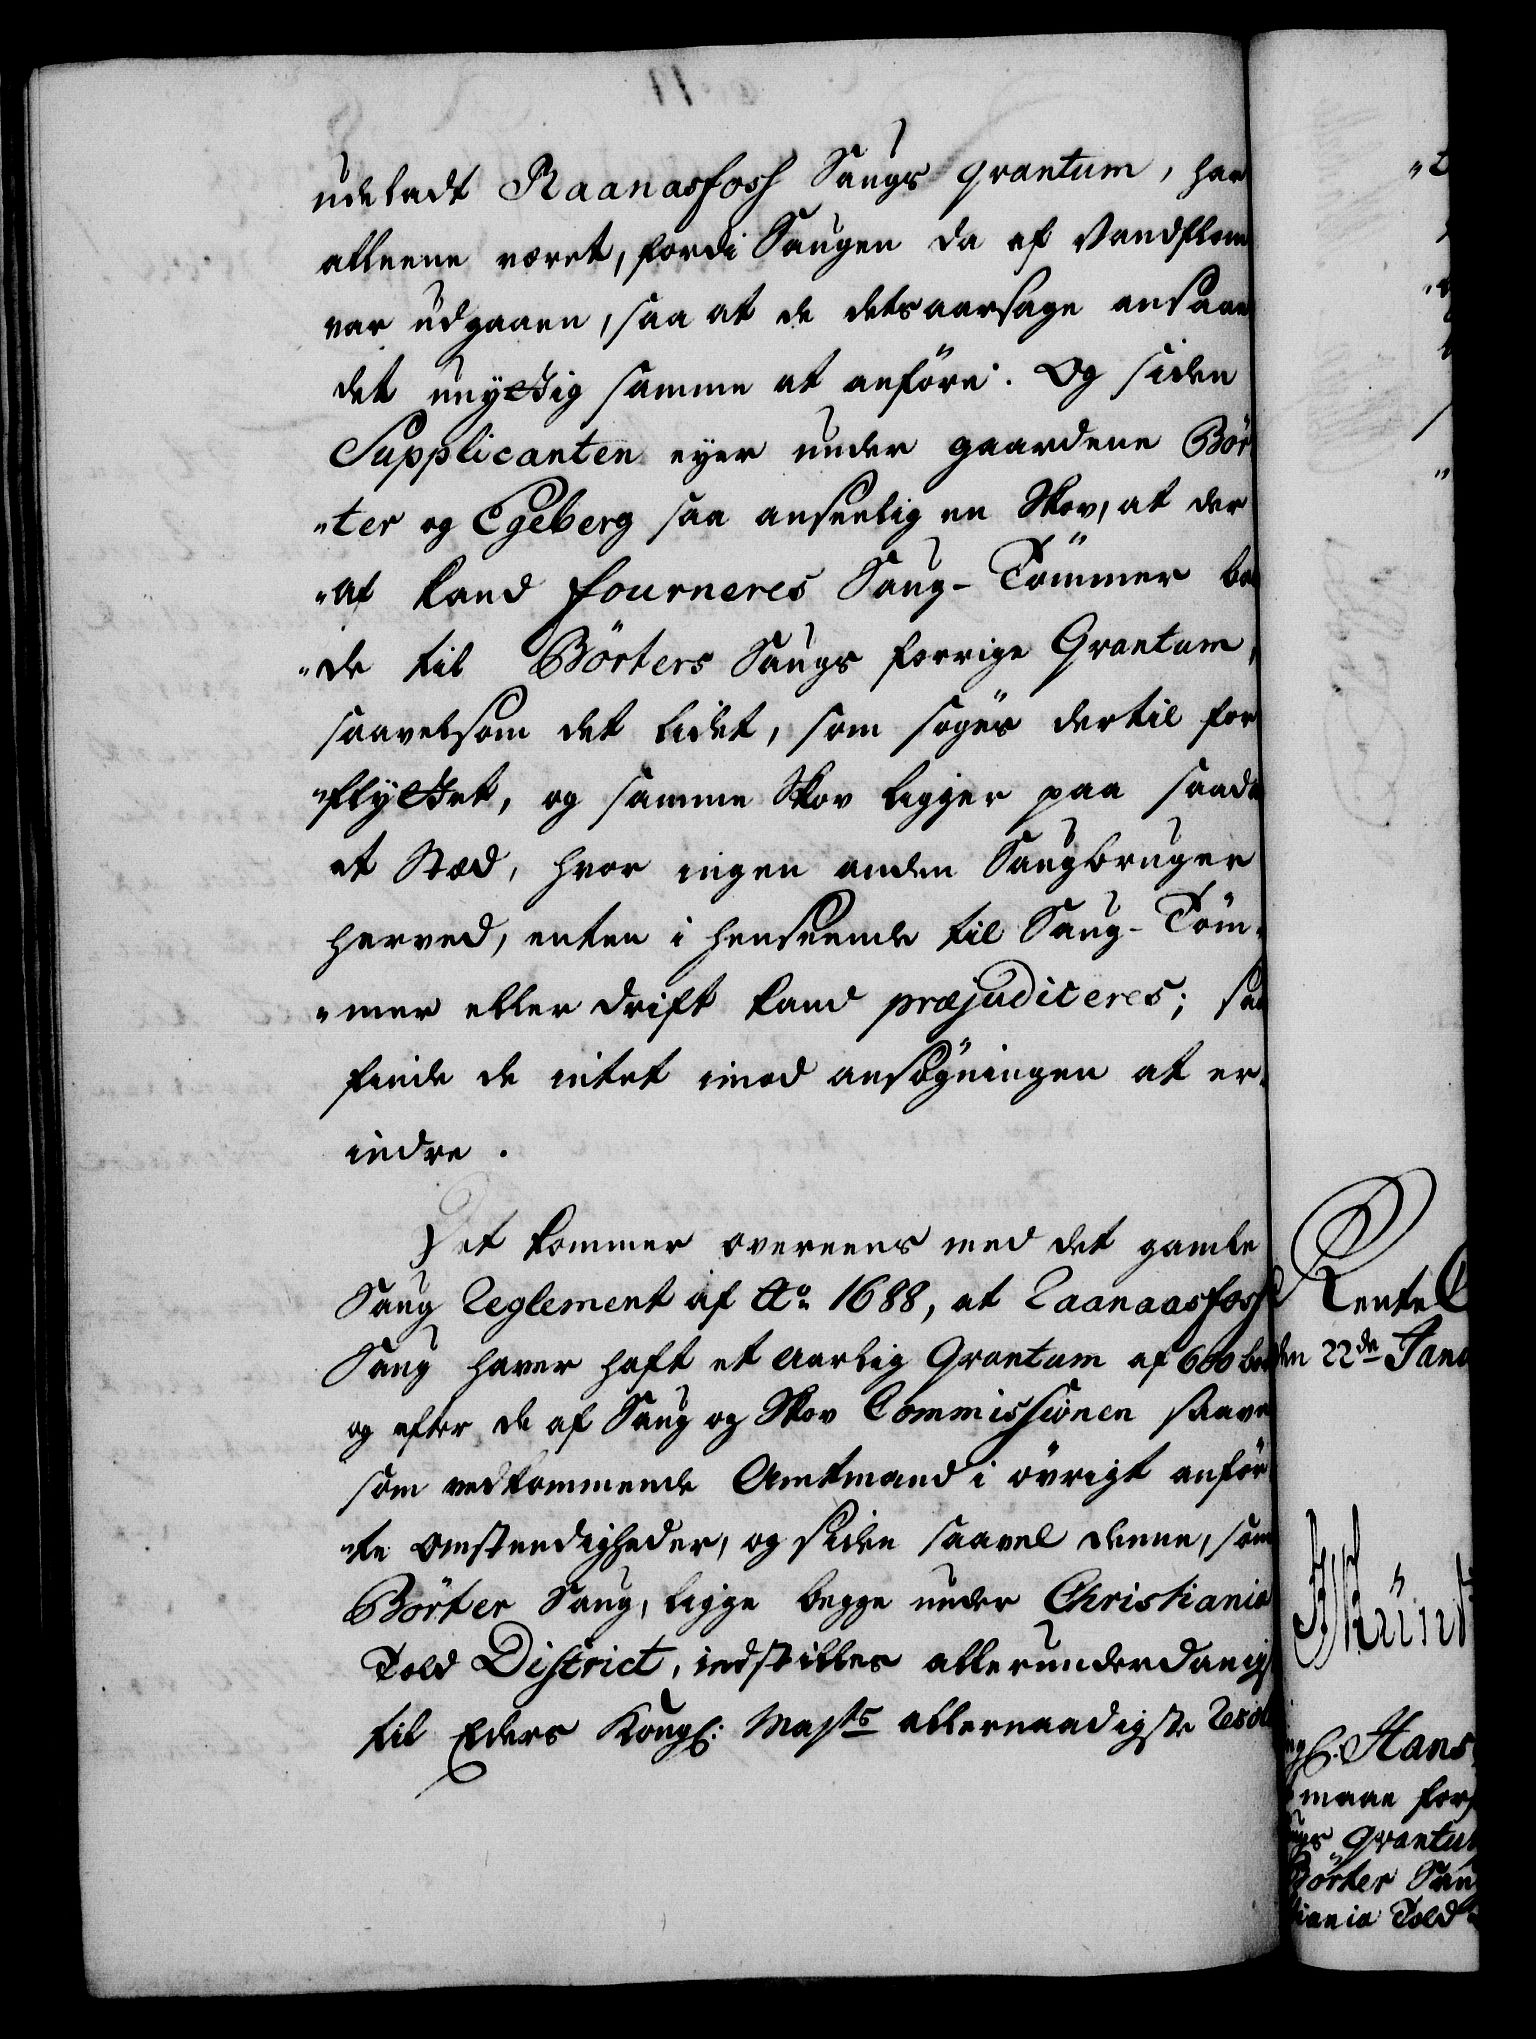 udeladt Raanasfosh Saugs qvantum, har
alleene været, fordi Saugen da af Vandflom
var udgaaen, saa at de dets aarsage ansaae
det unyttig samme at anföre. Og siden
Supplicanten eyer under gaardene Bör
"ter og Egeberg saa anseelig en Skov, at der
"af kand fourneres Saug-Tömmer baa
"de til Börters Saugs forrige Qvantum,
saavelsom det lidet, som søges dertil for
"flyttet, og samme Skov ligger paa saada
et Stæd, hvor ingen anden Saugbruger
herved, enten i henseende til Saug-Töm-
"mer eller Drift kand præjudiceres; saa
finde de intet imod ansøgningen at er-
indre.
Det kommer overeens med det gamle
Saug Reglement af Ao 1688, at Raanaasfosh
Saug haver haft et aarlig Qvantum af 600 b
og efter de af Saug og Skov Commissionen saave
som vedkommende Amtmand i övrigt anför
"te omstendigheder, og siden saavel denne, som
Börter Saug, ligge begge under Christiania
Told District, indstilles allerunderdanigst
til Eders Kongl: Majts allernaadigste Resol
Rente
den 22de Janu
Hans
maae for
Saugs qvantu
Börter Sau
tiania Told